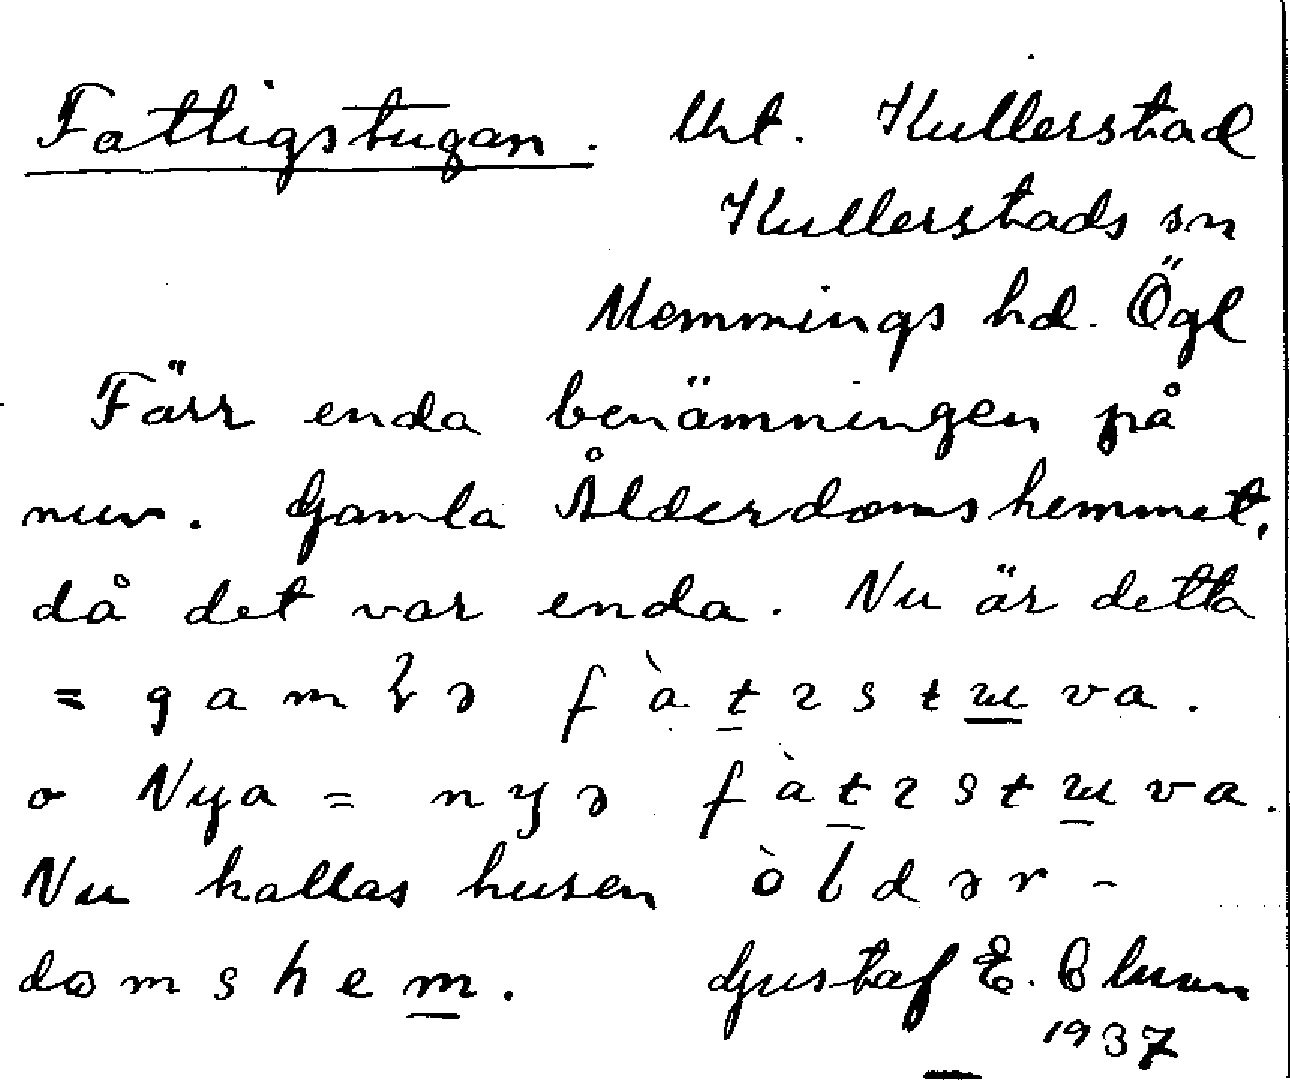 Fattigstugan. Uht. Kullerstad
Kullerstads sn
Memmings hd. Ögl
Färr enda benämningen på
nuv. Gamla Ålderdomshemmet,
då det var enda. Nu är detta
= gamɭə fàtɩstuva.
o Nya = nyə fàtɩstuva.
Nu kallas husen òldər-
domshem. Gustaf E.
1937